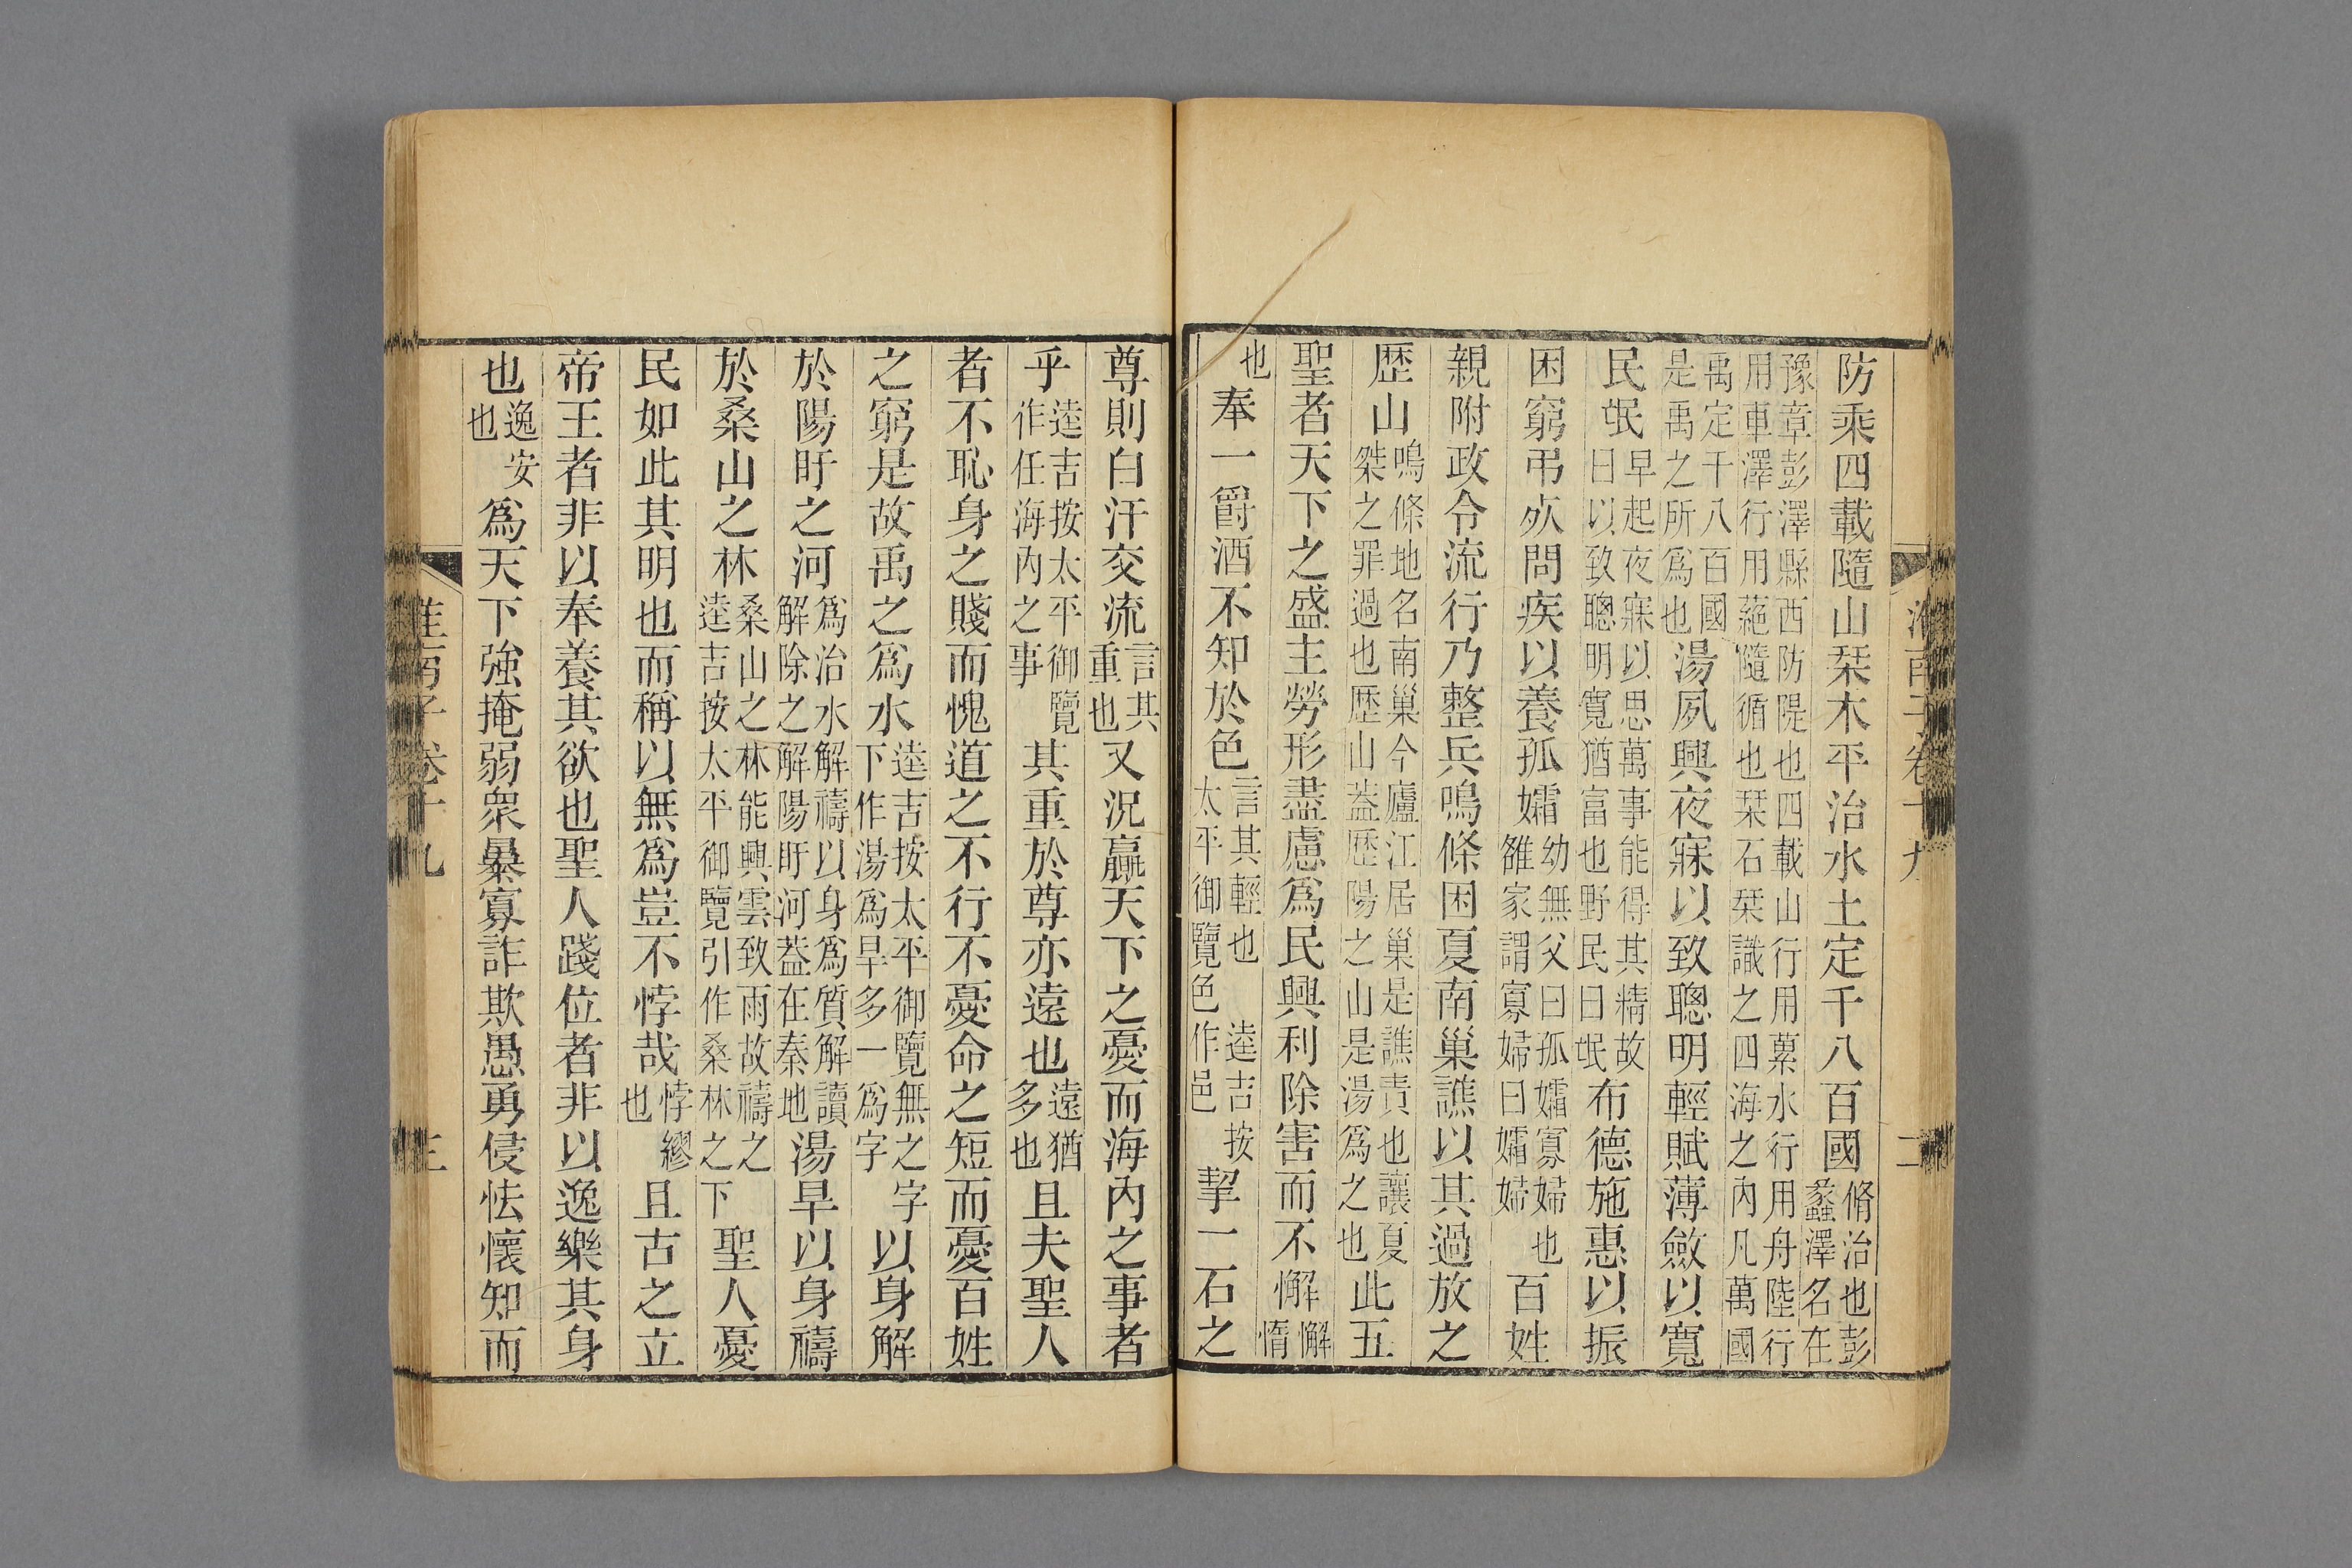 淮南子卷十九　二
防乘四載隨山栞木平治水土定千八百國脩治也彭蠡澤名在
豫章彭澤縣西防隄也四載山行用蔂水行用舟陸行用車澤行用蕝隨循也栞石栞識之四海之內凡萬國
禹定千八百國是禹之所爲也湯夙興夜寐以致聰明輕賦薄斂以寬
民氓早起夜寐以思萬事能得其精故曰以致聰明寬猶富也野民曰氓布德施惠以振
困窮弔㱙問疾以養孤孀幼無父曰孤孀寡婦也雒家謂寡婦曰孀婦百姓
親附政令流行乃整兵鳴條困夏南巢譙以其過放之
歷山鳴條地名南巢今廬江居巢是譙責也讓夏桀之罪過也歷山葢歷陽之山是湯爲之也此五
聖者天下之盛主勞形盡慮爲民興利除害而不懈懈惰
也奉一爵酒不知於色言其輕也　逵吉按太平御覽色作邑挈一石之
尊則白汗交流言其重也又況贏天下之憂而海內之事者
乎逵吉按太平御覽作任海內之事其重於尊亦遠也遠猶多也且夫聖人
者不恥身之賤而愧道之不行不憂命之短而憂百姓
之窮是故禹之爲水逵吉按太平御覽無之字下作湯爲旱多一爲字以身解
於陽盱之河爲治水解禱以身爲質解讀解除之解陽盱河葢在秦地湯旱以身禱
於桑山之林桑山之林能興雲致雨故禱之逵吉按太平御覽引作桑林之下聖人憂
民如此其明也而稱以無爲豈不悖哉悖繆也且古之立
帝王者非以奉養其欲也聖人踐位者非以逸樂其身
也逸安也爲天下強掩弱衆暴寡詐欺愚勇侵怯懷知而
淮南子卷十九　三